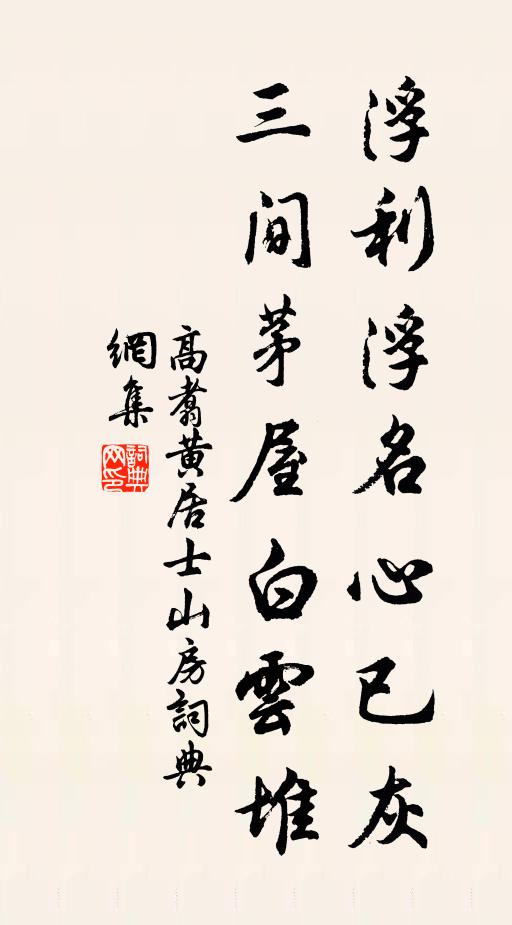 浮利浮名心已灰
三间茅屋白雲堆
高翥黄居士山房詞典
網集
詞典
网印